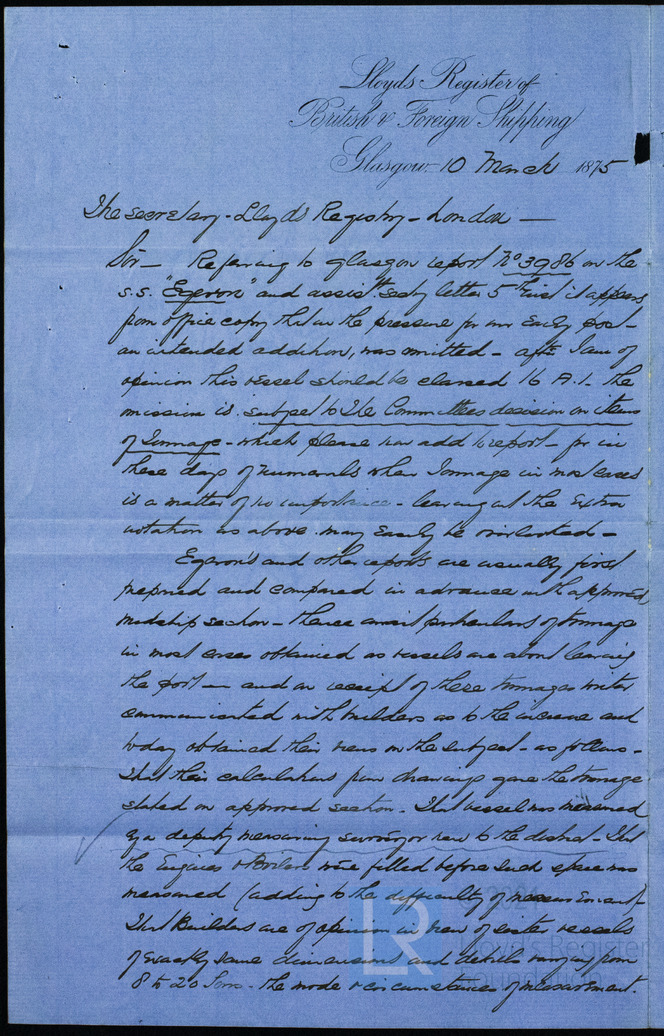 Lloyds Register of
British & Foreign Shipping
Glasgow 10 March 1875
The secretary - Lloyds Registry - London -
Sir - Referring to glasgow report No 3986 on the
s.s. "Egeron" and assist. secty letter 5th inst it appears
from office copy that in the pressure for our Early post -
an intended addition, was omitted - after I am of
opinion this vessel should be classed 16 A.1. the
omission is subject to the Committees decision on items
of Tonnage - which please now add to report - for in
these days of numerals when Tonnage in most cases
is a matter of no importance - leaving out the Extra
notation as above may Easily be overlooked -
Egeron's and other reports are usually first
prepared and compared in advance with approved
midship section - these await particulars of tonnage
in most cases obtained as vessels are about leaving
the port - and on receipt of these tonnages writer
communicated with builders as to the increase and
today obtained their views on the subject - as follows -
That their calculations from drawings gave the tonnage
stated on approved section - That vessel was measured
by a deputy measuring surveyor new to the district - That
the Engines & Boilers were filled before such space was
measured (adding to the difficulty of measurement)
That Builders are of opinion in view of sister vessels
of exactly same dimensions and details varying from
8 to 20 Tons - the mode & circumstances of measurement.
LR
Lloyd's Register
Foundation